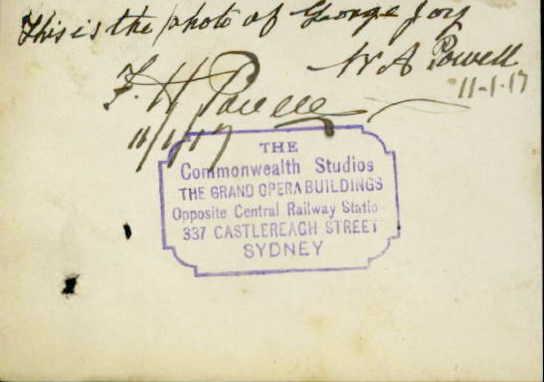 This is the photo of George Joy
W A Powell
11-1-17
F. H Powell
11/1/17
THE
Commonwealth Studios
THE GRAND OPERA BUILDINGS
Opposite Central Railway Statio
337 CASTLEREAGH STREET
SYDNEY